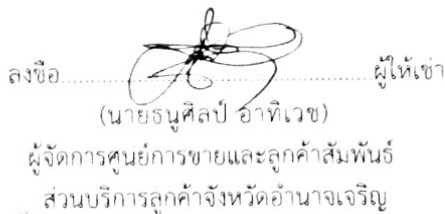 ลงชื่อ........................................ผู้ให้เช่า
(นายธนูศิลป์ อาทิเวช)
ผู้จัดการศูนย์การขายและลูกค้าสัมพันธ์
ส่วนบริการลูกค้าจังหวัดอำนาจเจริญ